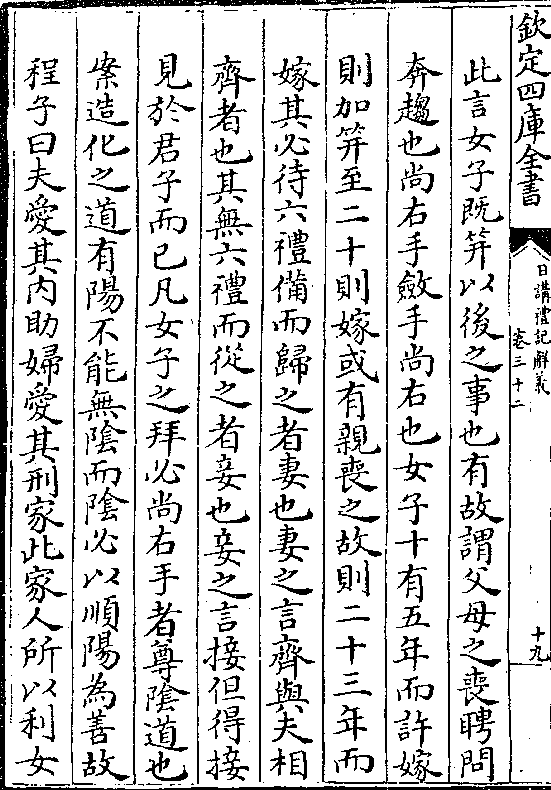 欽定四庫全書
日講禮記解義
卷三十二
十九
此言女子既笄以後之事也有故謂父母之喪聘問
奔趨也尚右手斂手尚右也女子十有五年而許嫁
則加笄至二十則嫁或有親喪之故則二十三年而
嫁其必待六禮備而歸之者妻也妻之言齊與夫相
齊者也其無六禮而從之者妾也妾之言接但得接
見於君子而已凡女子之拜必尚右手者尊陰道也
案造化之道有陽不能無陰而陰必以順陽為善故
程子曰夫愛其内助婦愛其刑家此家人所以利女